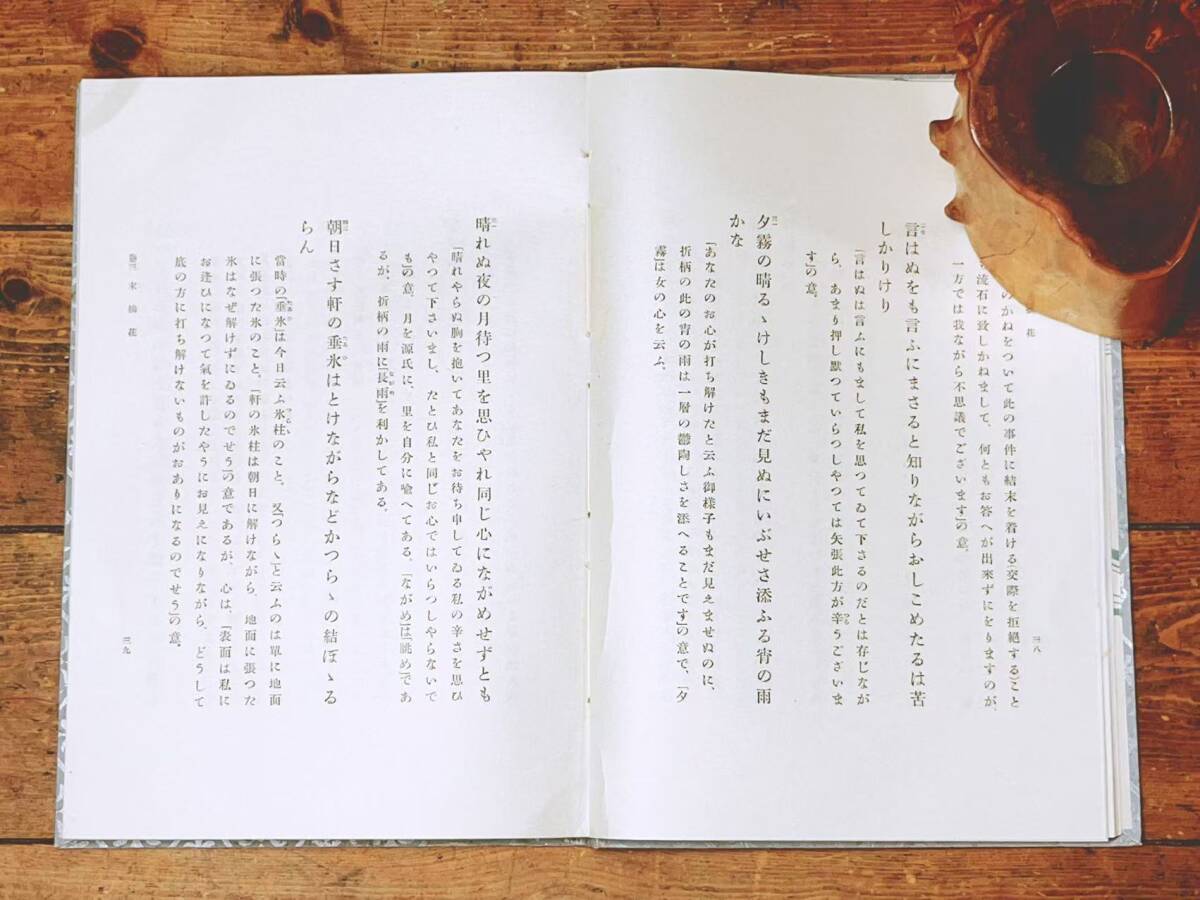 花
三八
のかねをついて此の事件に結末を着ける(交際を拒絶する)こと
流石に致しかねまして、何ともお答へが出來ずにをりますのが、
一方では我ながら不思議でございます」の意。
言はぬをも言ふにまさると知りながらおしこめたるは苦
しかりけり
「言はぬは言ふにもまして私を思つてゐて下さるのだとは存じなが
ら、あまり押し默つていらつしやつては矢張此方が辛うございま
す」の意。
夕霧の晴るゝけしきもまだ見ぬにいぶせさ添ふる宵の雨
かな
「あなたのお心が打ち解けたと云ふ御樣子もまだ見えませぬのに、
折柄の此の宵の雨は一層の鬱陶しさを添へることです」の意で、「夕
霧」は女の心を云ふ。
晴れぬ夜の月待つ里を思ひやれ同じ心にながめせずとも
「晴れやらぬ胸を抱いてあなたをお待ち申してゐる私の辛さを思ひ
やつて下さいまし、たとひ私と同じお心ではいらつしやらないで
も」の意。月を源氏に、里を自分に喩へてある。「ながめ」は「眺め」であ
るが、折柄の雨に「長雨」を利かしてある。
朝日さす軒の垂氷はとけながらなどかつらゝの結ぼゝる
らん
當時の「垂氷」は今日云ふ氷柱のこと。又「つらゝ」と云ふのは單に地面
に張つた氷のこと。「軒の氷柱は朝日に解けながら、地面に張つた
氷はなぜ解けずにゐるのでせう」の意であるが、心は、「表面は私に
お逢ひになつて氣を許したやうにお見えになりながら、どうして
底の方に打ち解けないものがおありになるのでせう」の意。
卷三 末摘花
三九